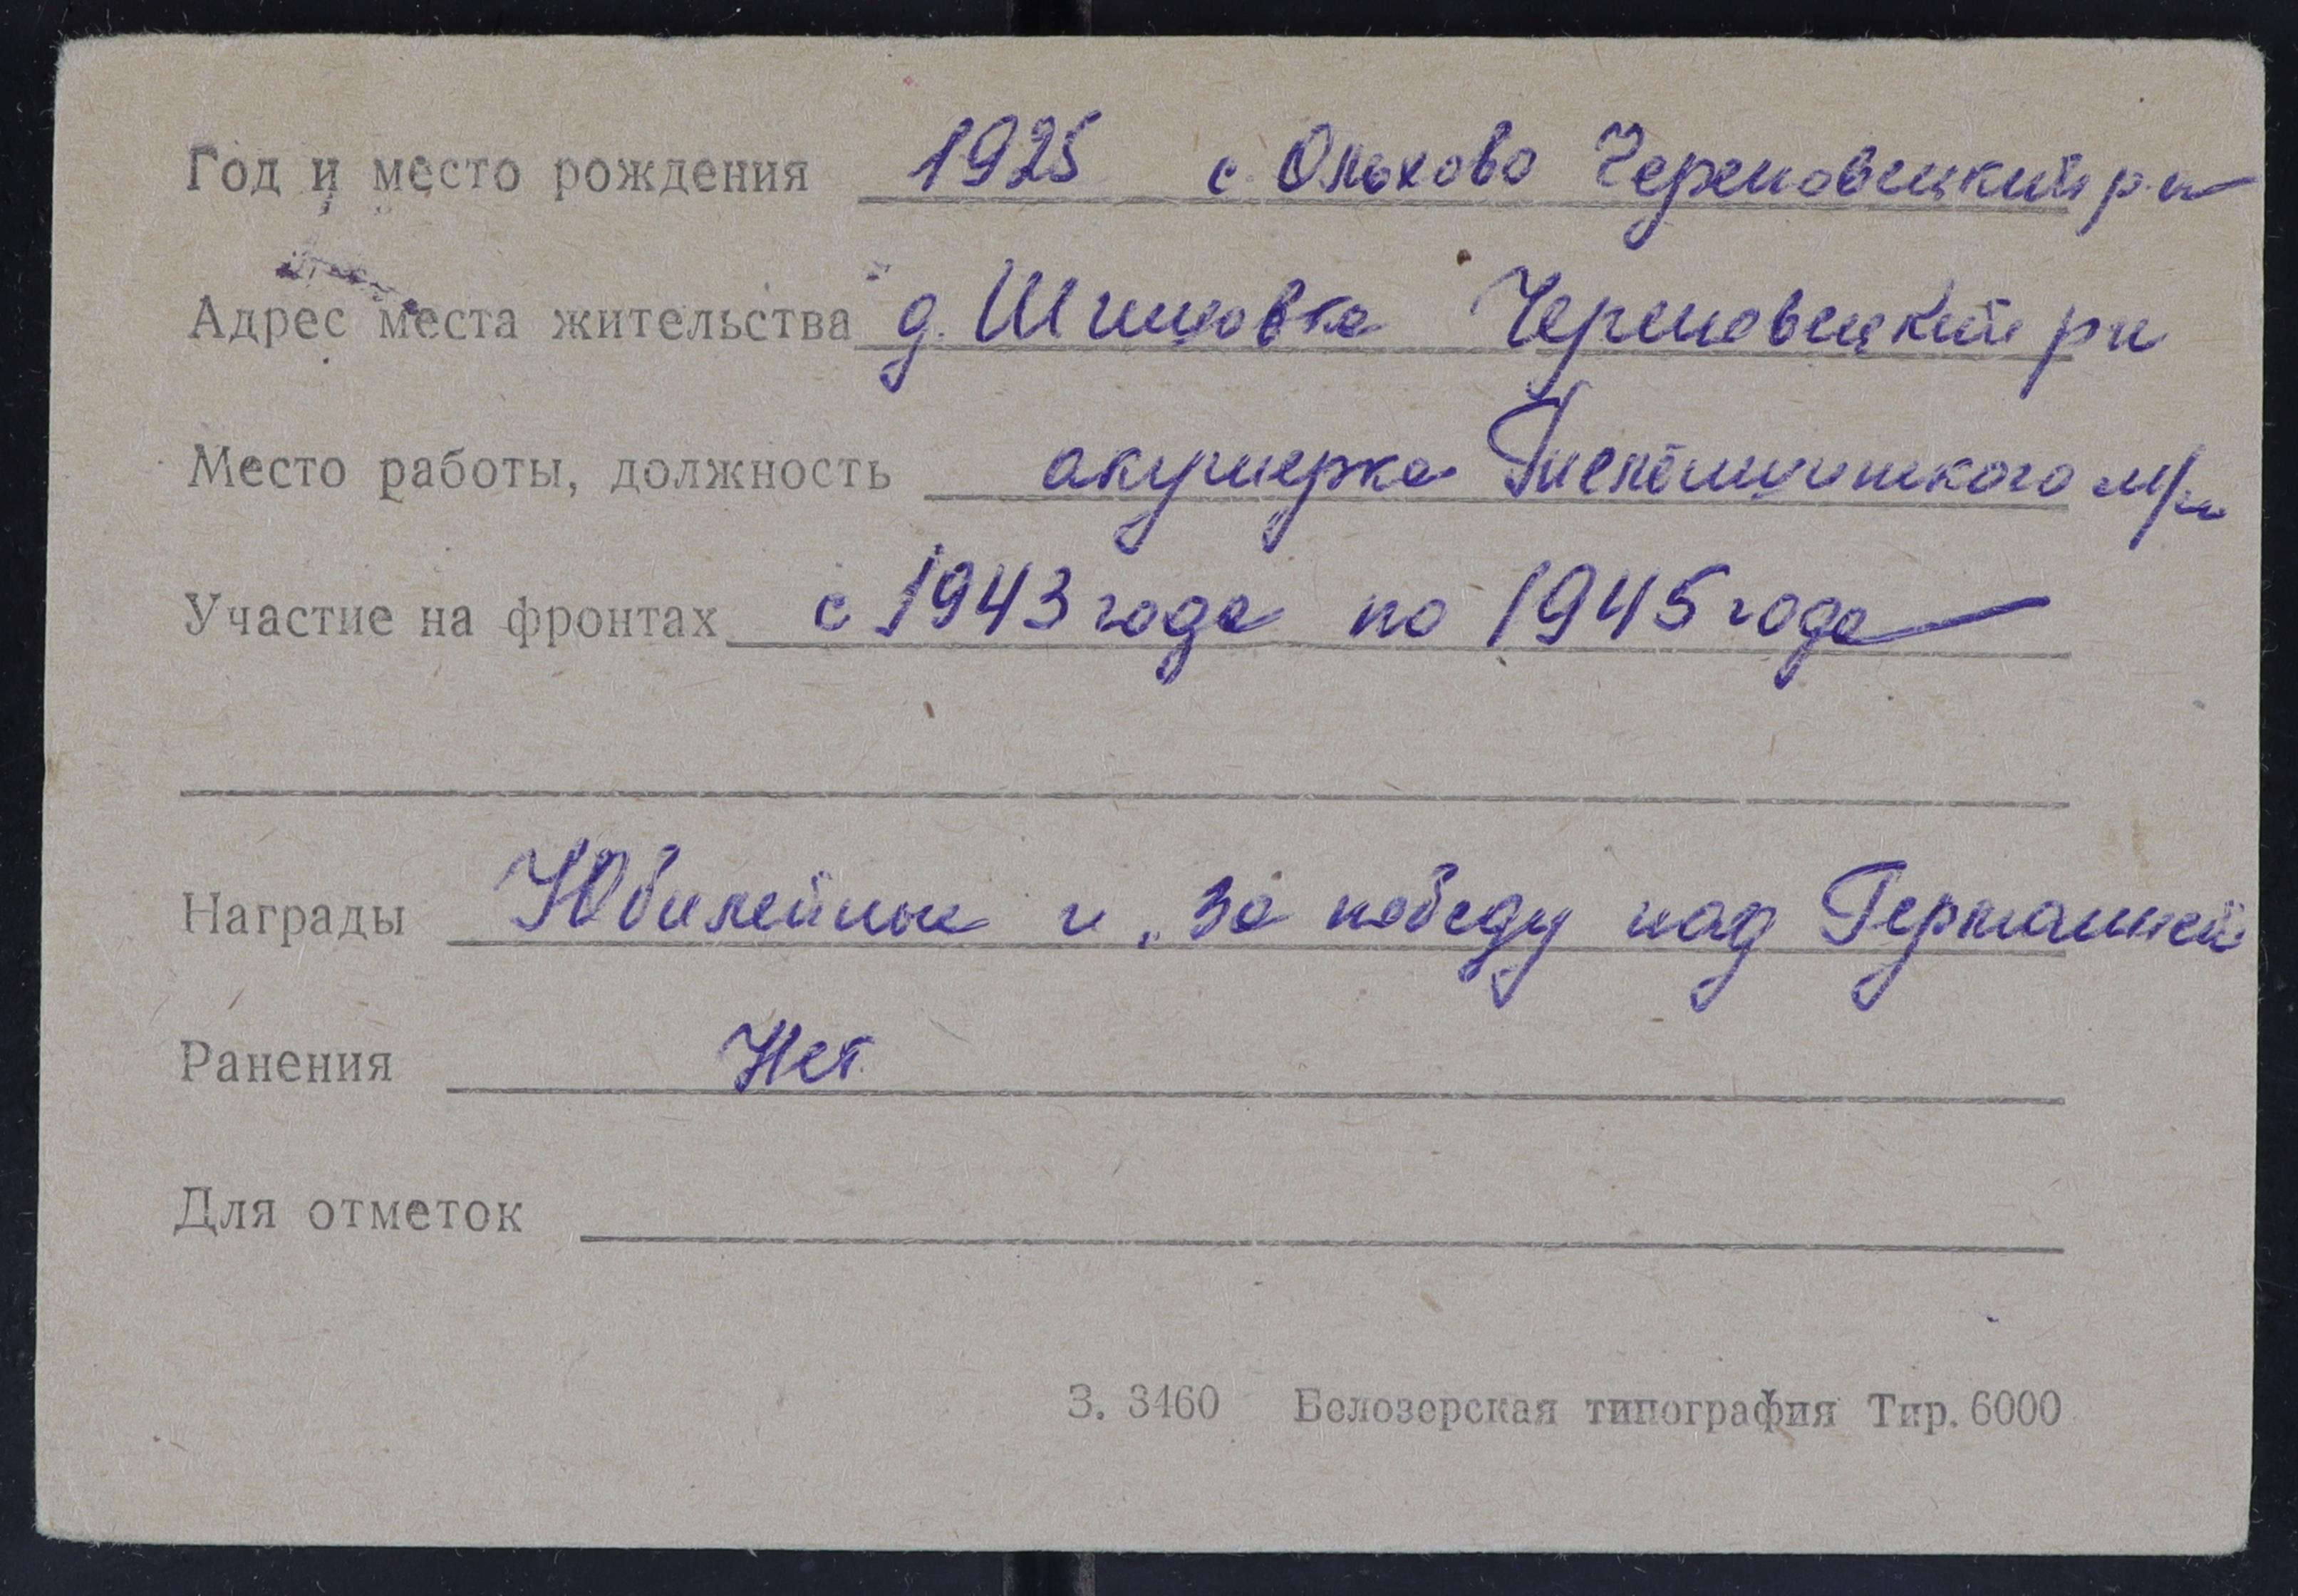 Год и место рождения 1925 с. Ольхово Череповецкий р-н
Адрес места жительства д. Шишовка Череповецкий рн
Место работы, должность акушерка
Участие на фронтах с 1943 года по 1945 года
Награды Юбилейные и „За победу над Германией
Ранения Нет
Для отметок
З. 3460 Белозерская типография Тир. 6000